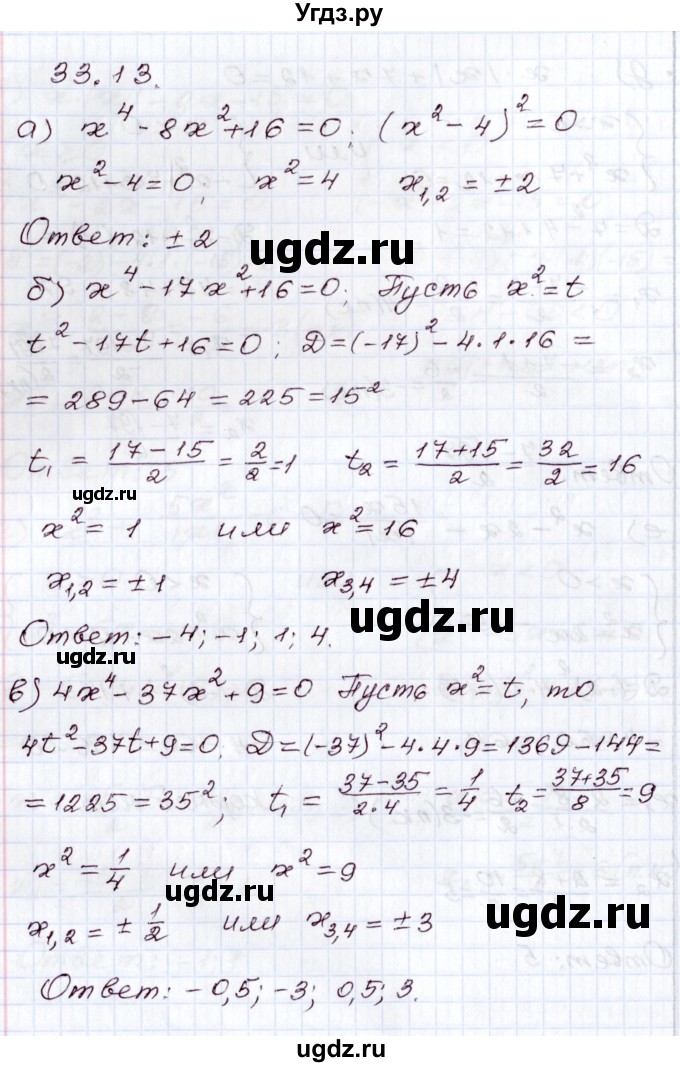 Угдз.ру
33.13.
а) x⁴ - 8x² + 16 = 0; (x² - 4)² = 0
x² - 4 = 0; x² = 4 x₁,₂ = ± 2
Ответ: ± 2
ugdz.ru
б) x⁴ - 17x² + 16 = 0; Пусть x² = t
t² - 17t + 16 = 0; D = (-17)² - 4·1·16 =
= 289 - 64 = 225 = 15²
t₁ = (17 - 15)/2 = 2/2 = 1 t₂ = (17 + 15)/2 = 32/2 = 16
ugdz.ru
x² = 1 или x² = 16
x₁,₂ = ± 1 x₃,₄ = ± 4
ugdz.ru
Ответ: - 4; -1; 1; 4.
ugdz.ru
в) 4x⁴ - 37x² + 9 = 0 Пусть x² = t, то
4t² - 37t + 9 = 0. D = (-37)² - 4·4·9 = 1369 - 144 =
= 1225 = 35²; t₁ = (37 - 35)/(2·4) = 1/4 t₂ = (37 + 35)/8 = 9
x² = 1/4 или x² = 9
ugdz.ru
x₁,₂ = ± 1/2 или x₃,₄ = ± 3
ugdz.ru
Ответ: - 0,5; -3; 0,5; 3.
ugdz.ru